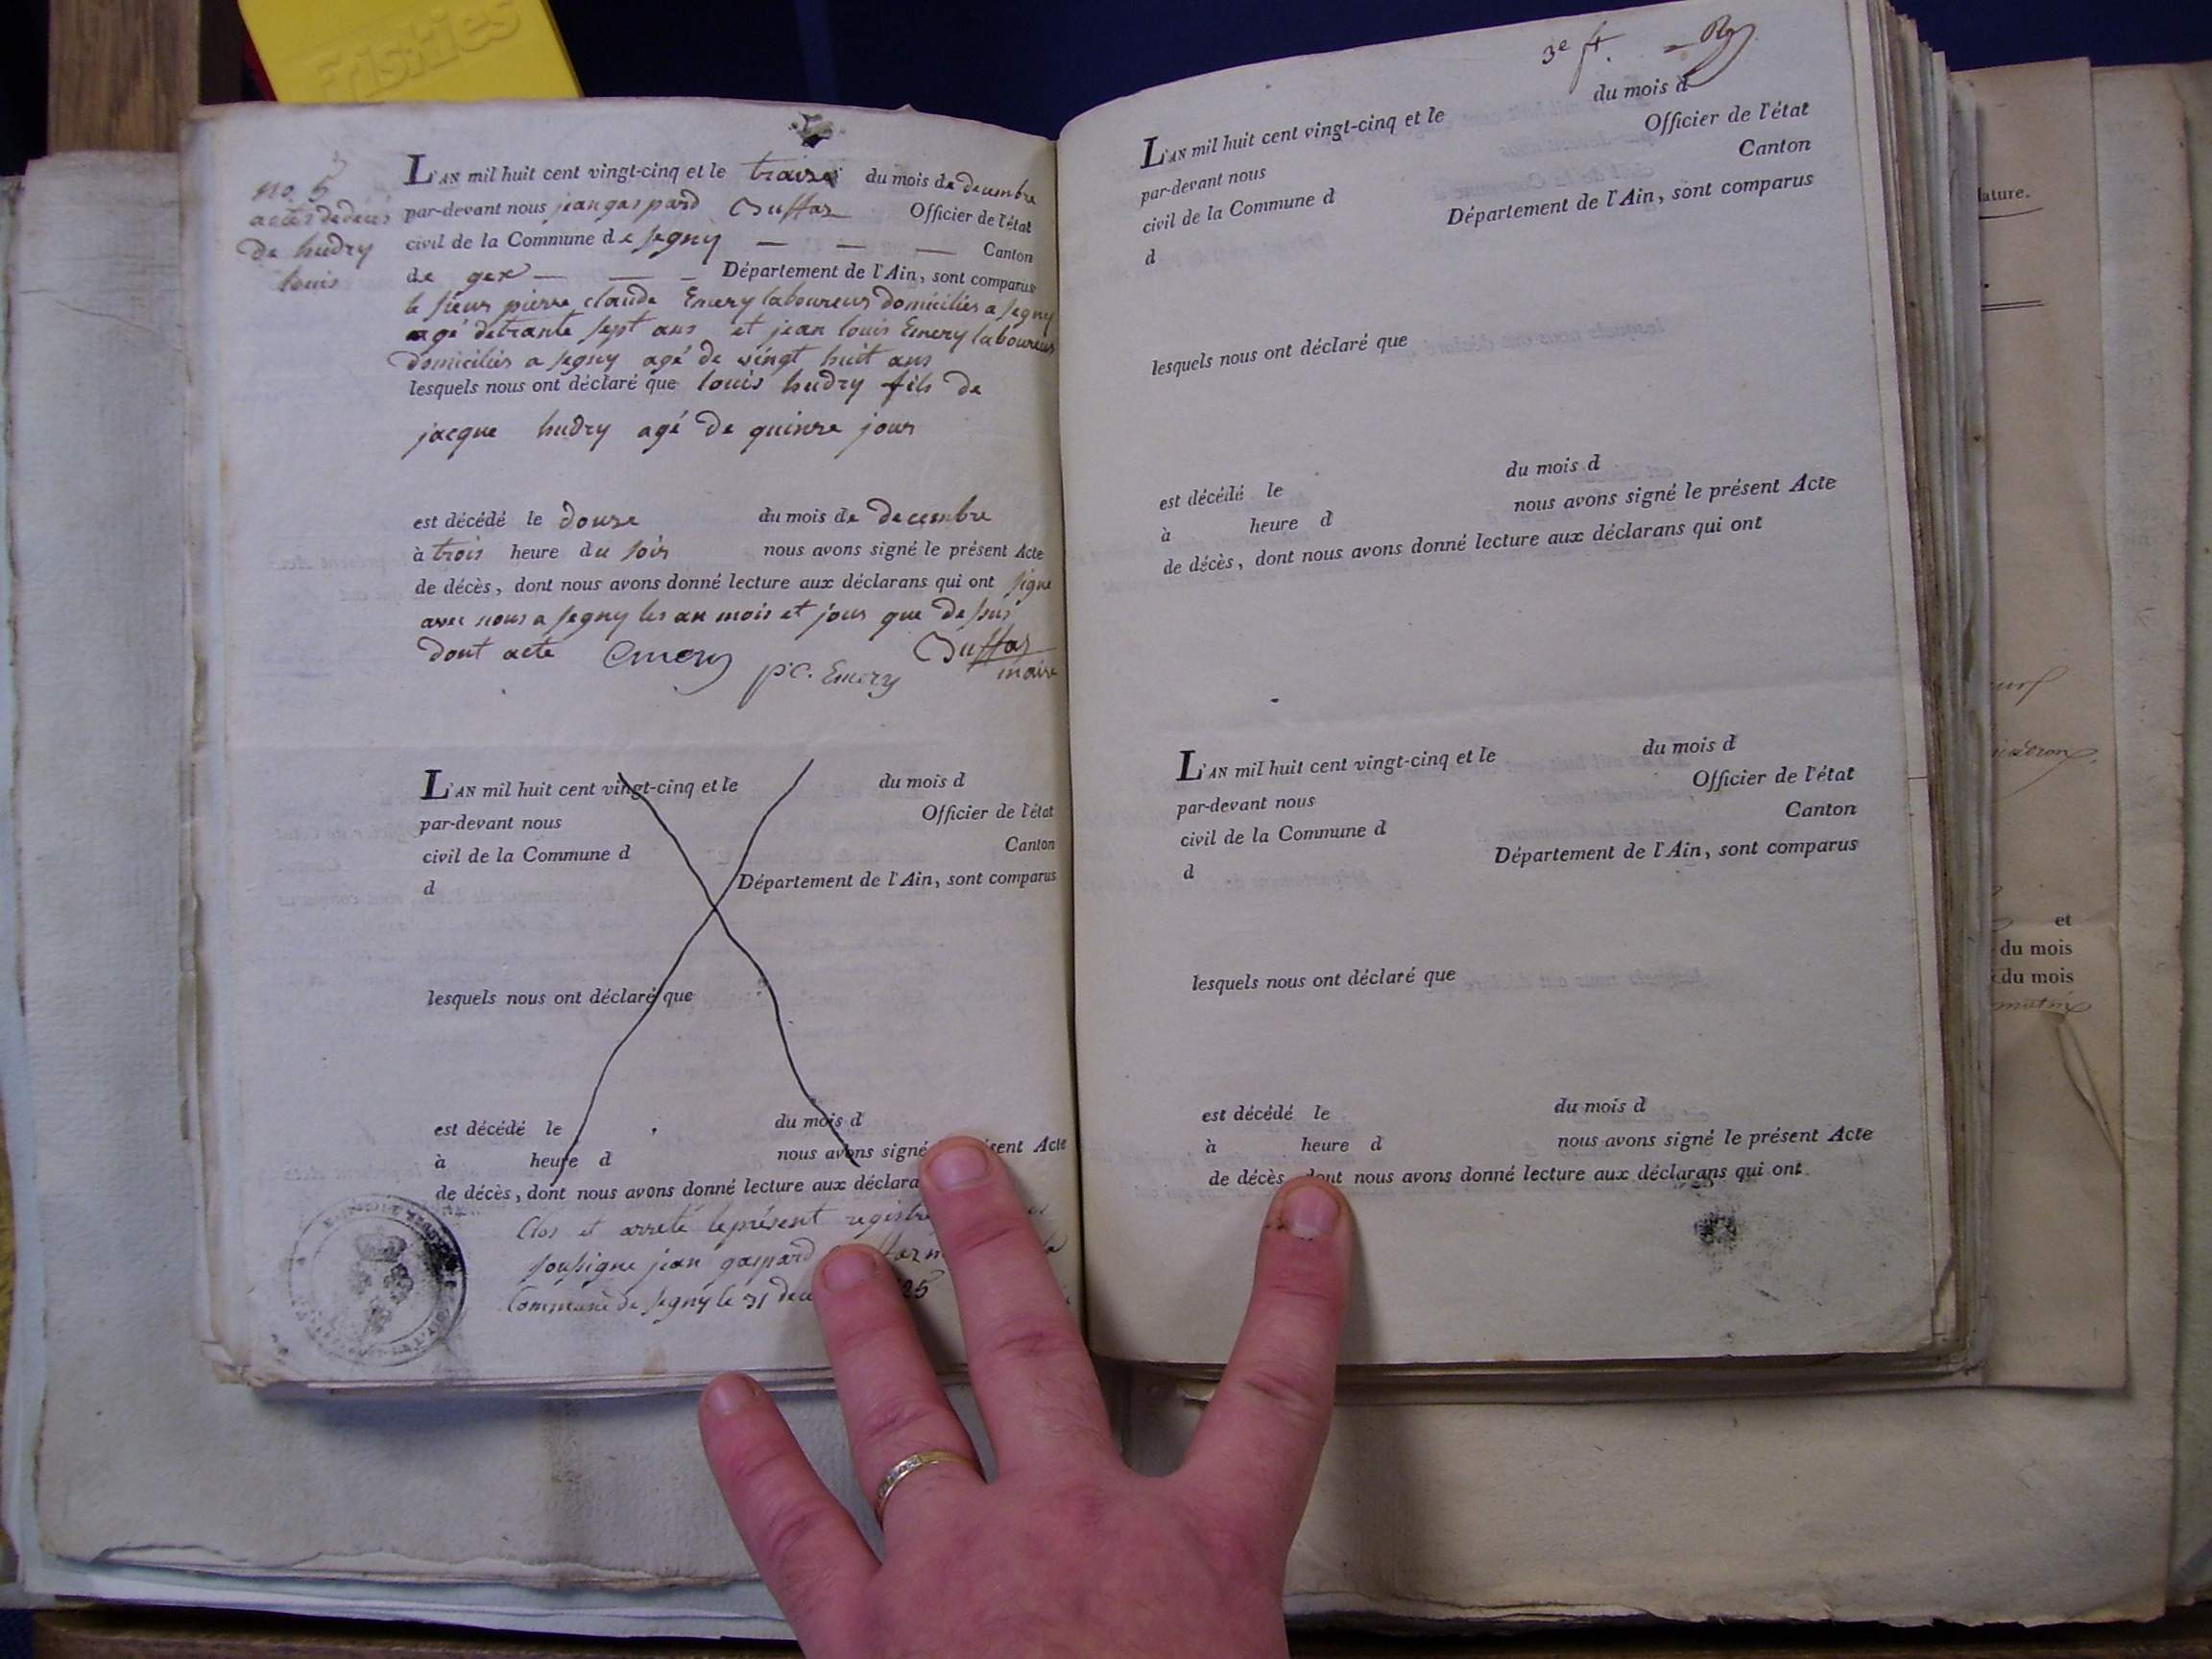 Friskies
no. 5
actes de décés
de hudry
louis
L'AN mil huit cent vingt-cinq et le traise du mois de decembre
par-devant nous jean gaspard Buffaz Officier de l'état
civil de la Commune de segny — — — Canton
de gex — — — Département de l'Ain, sont comparus
le sieur pierre claude Emery laboureur domiciliés a segny
agé detrante sept ans et jean louis Emery laboureur
domiciliés a segny agé de vingt huit ans
lesquels nous ont déclaré que louis hudry fils de
jacque hudry agé de quinse jour
est décédé le douse du mois de decembre
à trois heure du soir nous avons signé le présent Acte
de décès, dont nous avons donné lecture aux déclarans qui ont signe
avec nous a segny les an mois et jour que dessus
dont acte Emery p.c. Emery Buffaz
maire
L'AN mil huit cent vingt-cinq et le du mois d
par-devant nous Officier de l'état
civil de la Commune d Canton
d Département de l'Ain, sont comparus
lesquels nous ont déclaré que
est décédé le du mois d
à heure d nous avons signé sent Acte
de décès, dont nous avons donné lecture aux déclara
Clos et arreté leprésent registre
soussigne jean gaspard
Commune de segny le 31 dec 25
3e ft.
L'AN mil huit cent vingt-cinq et le du mois d
par-devant nous Officier de l'état
civil de la Commune d Canton
d Département de l'Ain, sont comparus
lesquels nous ont déclaré que
est décédé le du mois d
à heure d nous avons signé le présent Acte
de décès, dont nous avons donné lecture aux déclarans qui ont
L'AN mil huit cent vingt-cinq et le du mois d
par-devant nous Officier de l'état
civil de la Commune d Canton
d Département de l'Ain, sont comparus
lesquels nous ont déclaré que
est décédé le du mois d
à heure d nous avons signé le présent Acte
de décès, dont nous avons donné lecture aux déclarans qui ont
ature.
et
du mois
du mois
matin